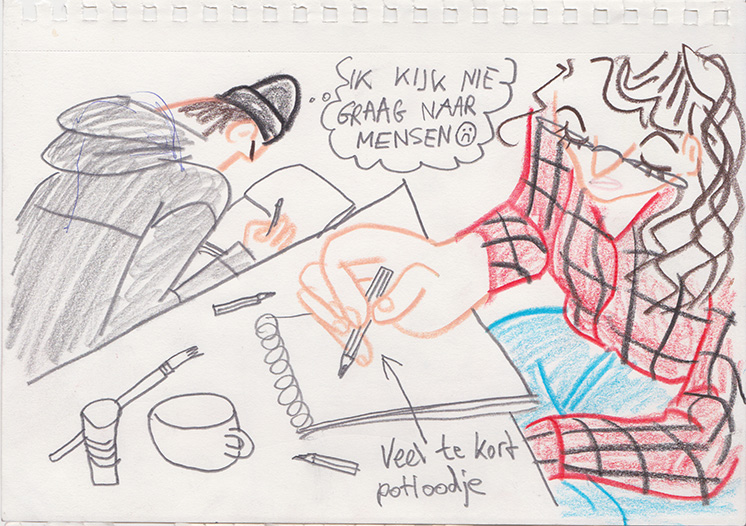 IK KIJK NIE
GRAAG NAAR
MENSEN
Veel te kort
potloodje